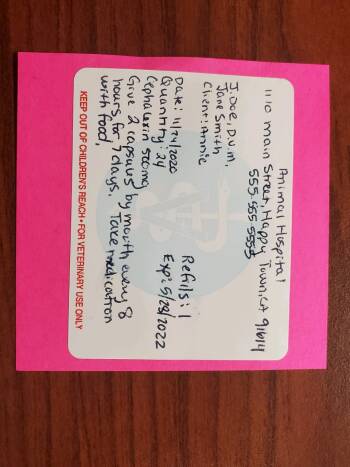 Animal Hospital
1110 Main Street, Happy Town, CA 91614
555-555-5555
J. Doe, D.V.M.
Jane Smith
Client: Annie
Date: 11/24/2020
Quantity: 24 Refills: 1
Cephalexin 500mg Exp: 5/28/2022
Give 2 capsules by mouth every 8
hours for 7 days. Take medication
with food.
KEEP OUT OF CHILDREN'S REACH • FOR VETERINARY USE ONLY